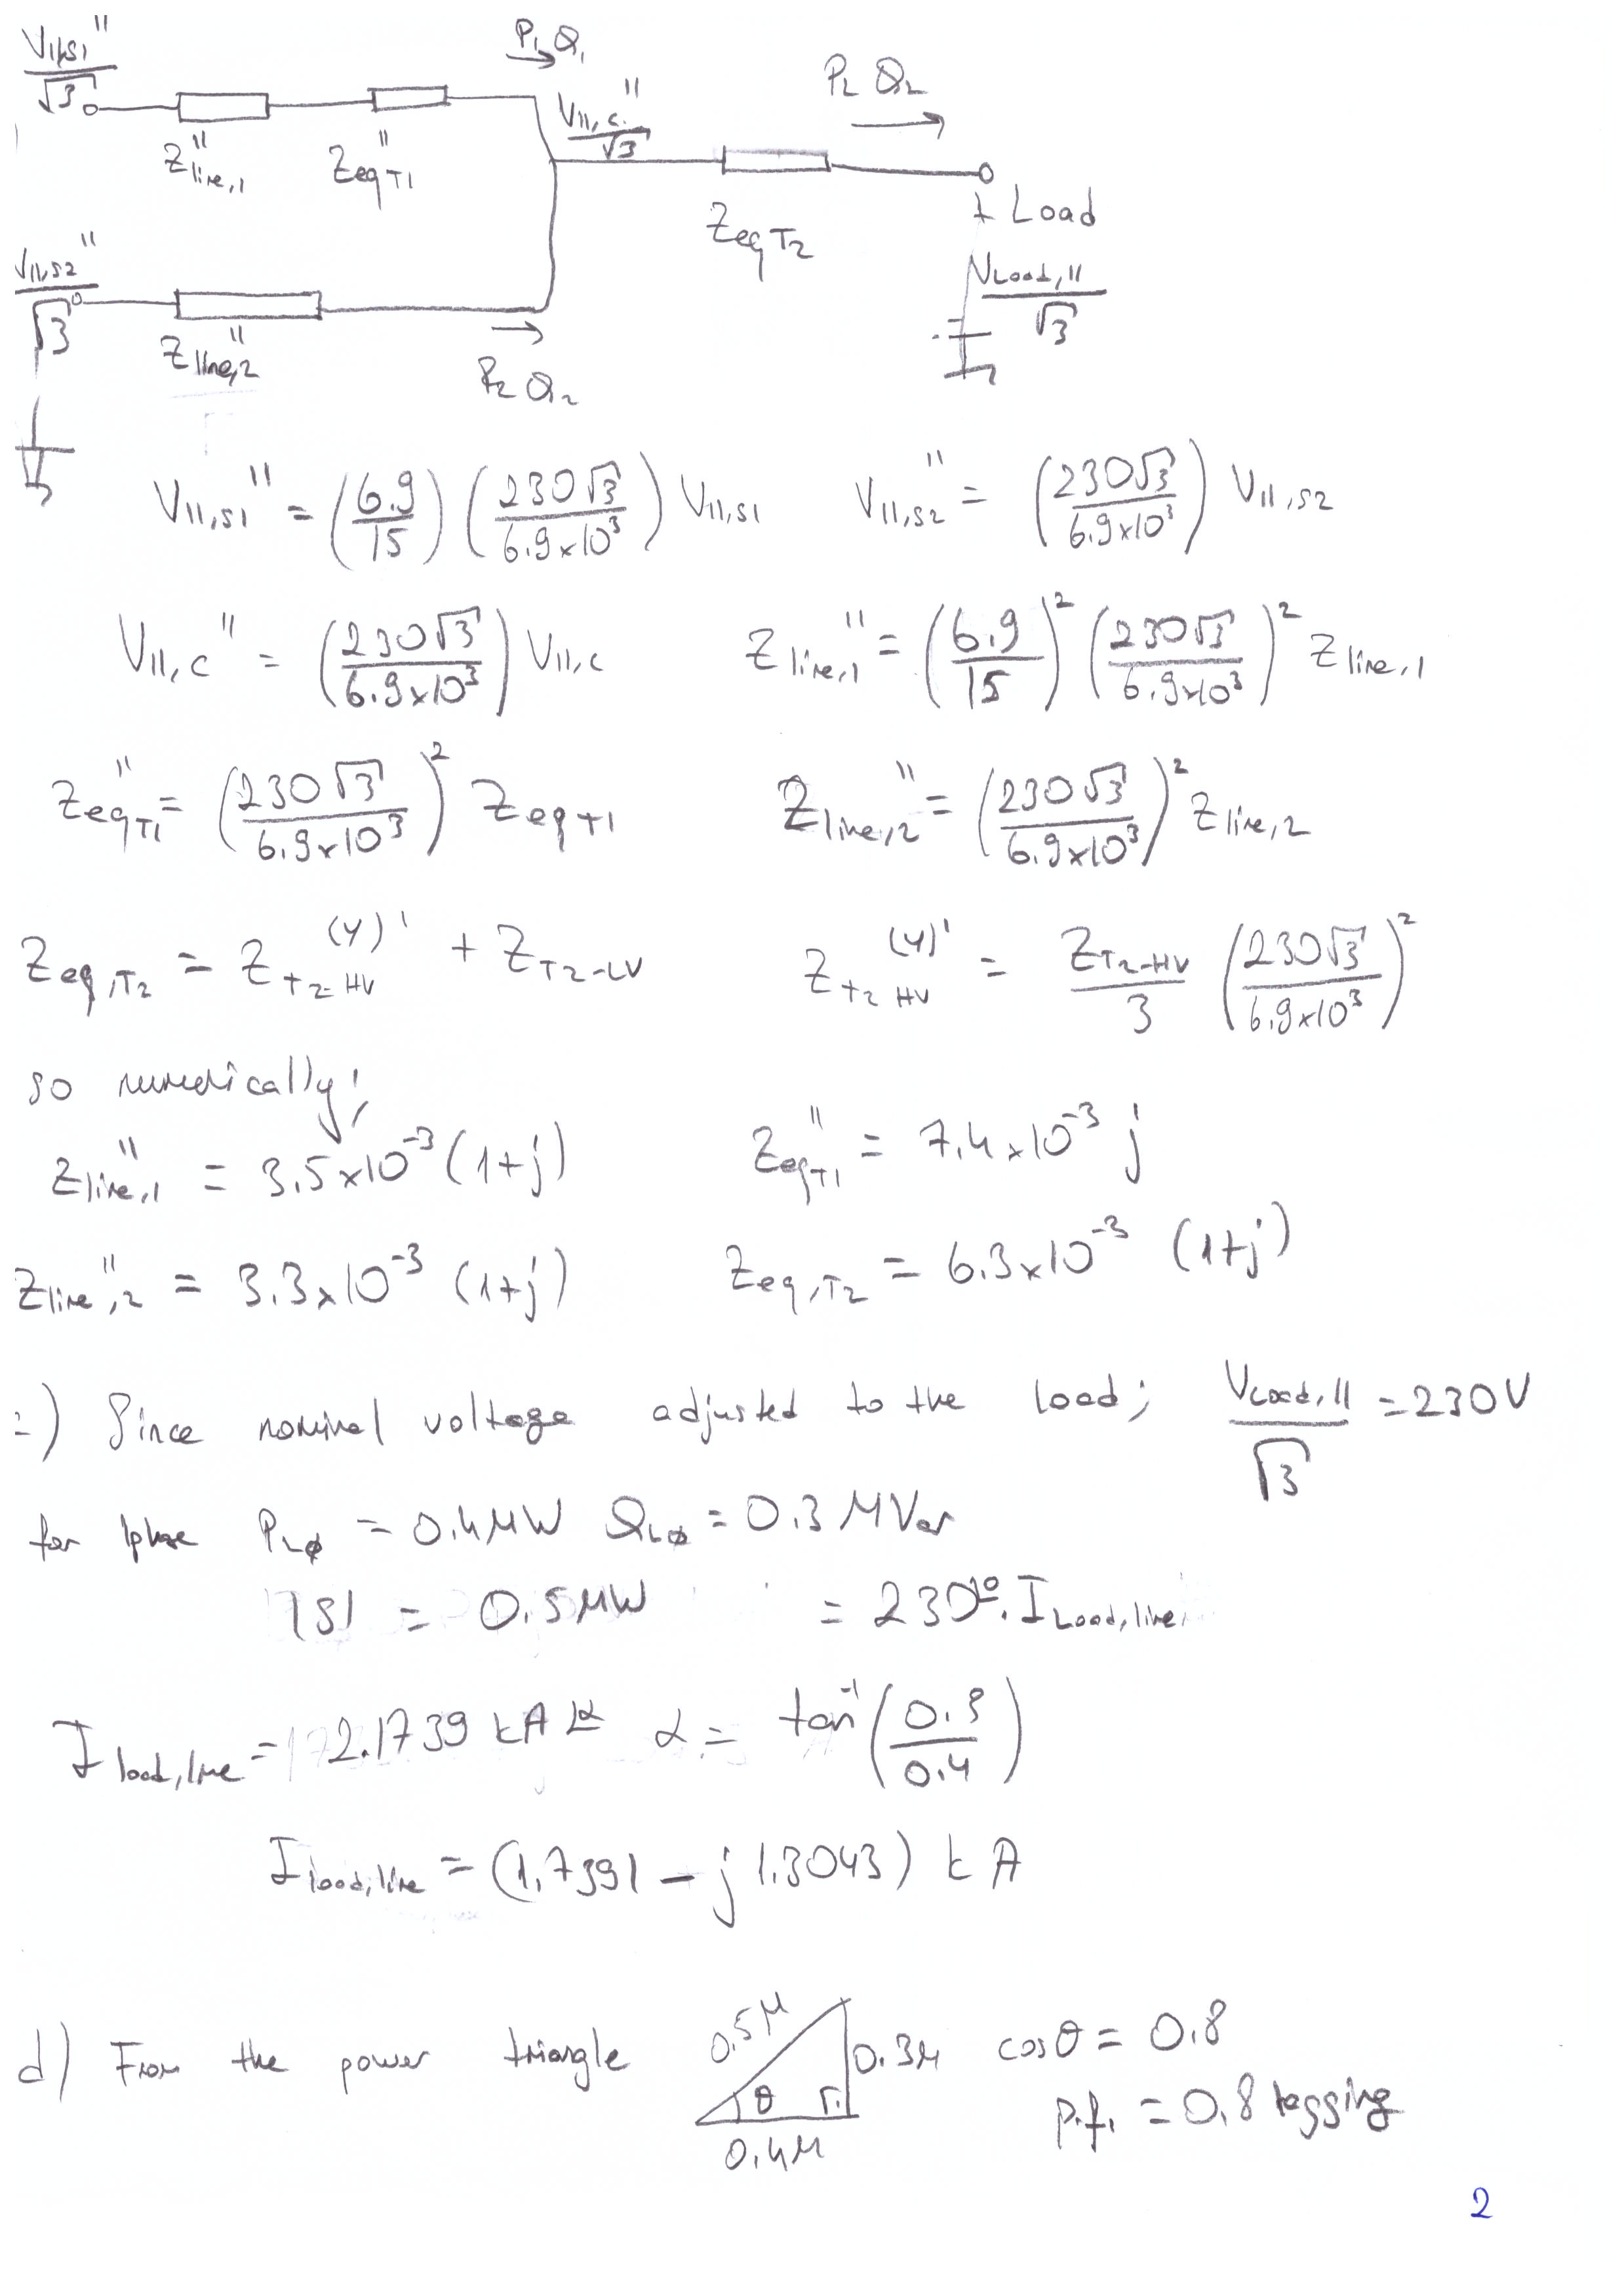 V_ll,s1'' / √3
P₁ Q₁
P_L Q_L
V_ll,c'' / √3
Z_line,1''   Z_eqT1''
Z_eqT2
+ Load
V_ll,s2'' / √3
V_Load,ll / √3
Z_line,2''
P₂ Q₂
V_ll,s1'' = (6.9/15) (230√3/6.9x10³) V_ll,s1   V_ll,s2'' = (230√3/6.9x10³) V_ll,s2
V_ll,c'' = (230√3/6.9x10³) V_ll,c   Z_line,1'' = (6.9/15)² (230√3/6.9x10³)² Z_line,1
Z_eqT1'' = (230√3/6.9x10³)² Z_eqT1   Z_line,2'' = (230√3/6.9x10³)² Z_line,2
Z_eq,T2 = Z_T2-HV^(Y)' + Z_T2-LV   Z_T2HV^(Y)' = Z_T2-HV/3 (230√3/6.9x10³)²
so numerically;
Z_line,1'' = 3.5x10⁻³ (1+j)   Z_eqT1'' = 7.4x10⁻³ j
Z_line,2'' = 3.3x10⁻³ (1+j)   Z_eq,T2 = 6.3x10⁻³ (1+j)
c) Since nominal voltage adjusted to the load; V_Load,ll/√3 = 230V
for 1phase P_Lø = 0.4MW Q_Lø = 0.3 MVar
|S| = 0.5MW = 230∠0.I_Load,line
I_load,line = 2.1739 kA ∠α   α = tan⁻¹(0.3/0.4)
I_load,line = (1.7391 - j1.3043) kA
d) From the power triangle 0.5M 0.3M θ 0.4M cosθ = 0.8
p.f. = 0.8 lagging
2